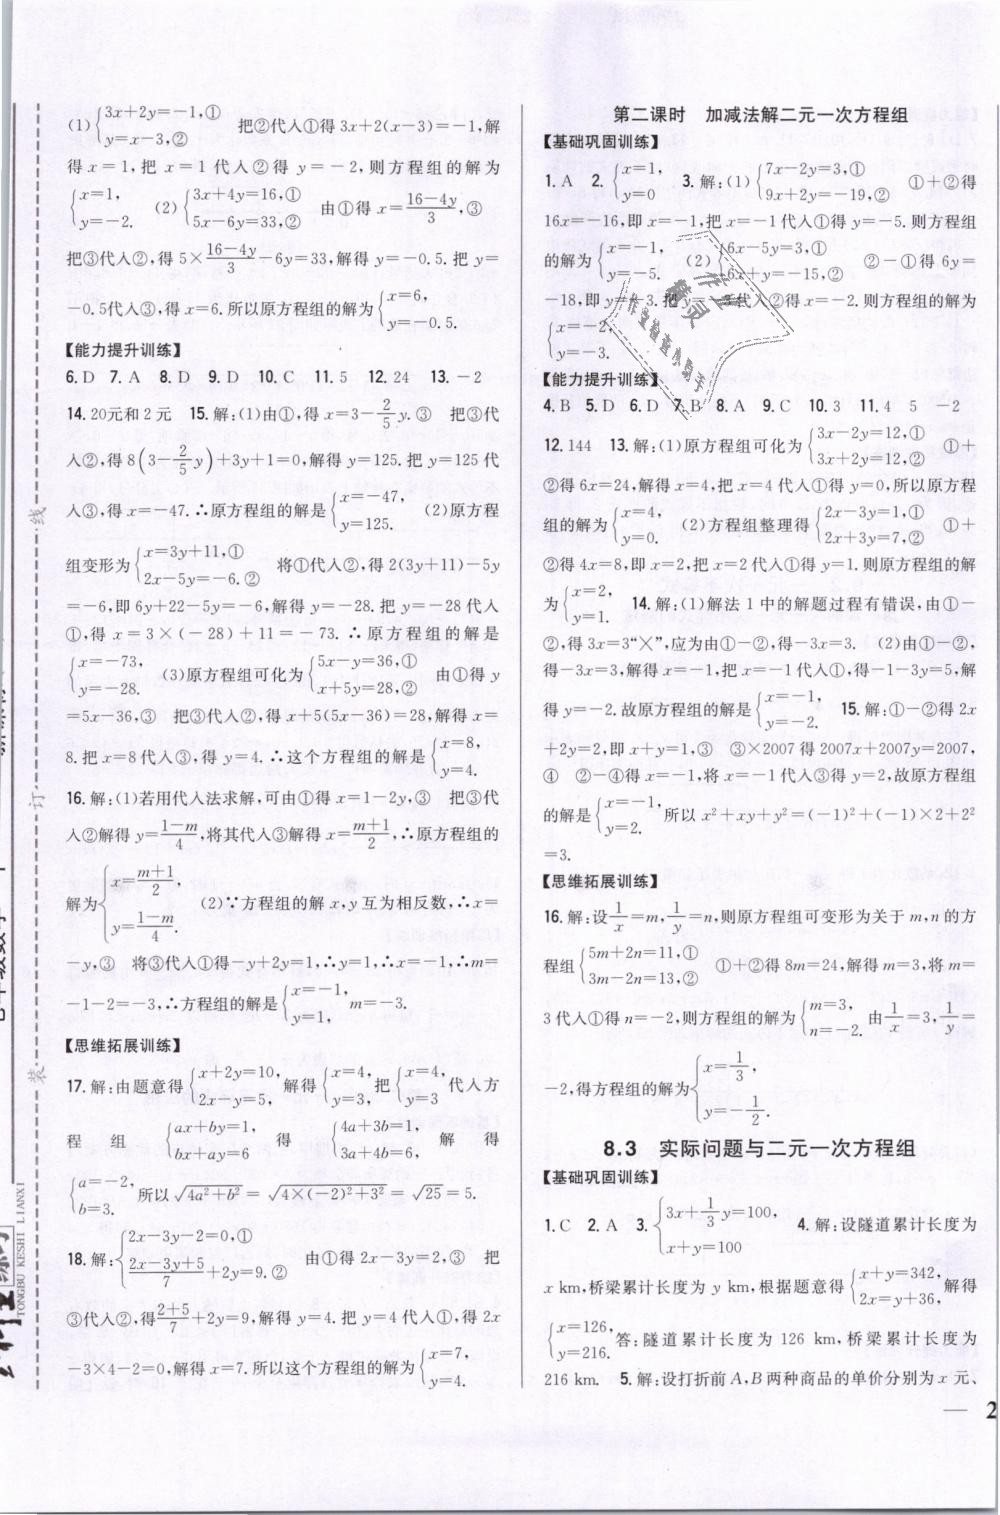 (1){3x+2y=-1,① y=x-3,② 把②代入①得3x+2(x-3)=-1,解
得x=1,把x=1代入②得y=-2,则方程组的解为
{x=1, y=-2. (2){3x+4y=16,① 5x-6y=33,② 由①得x=(16-4y)/3,③
把③代入②,得5×(16-4y)/3-6y=33,解得y=-0.5.把y=
-0.5代入③,得x=6.所以原方程组的解为{x=6, y=-0.5.
【能力提升训练】
6.D 7.A 8.D 9.D 10.C 11.5 12.24 13.-2
14.20元和2元 15.解:(1)由①,得x=3-2/5y.③ 把③代
入②,得8(3-2/5y)+3y+1=0,解得y=125.把y=125代
入③,得x=-47.∴原方程组的解是{x=-47, y=125. (2)原方程
组变形为{x=3y+11,① 2x-5y=-6.② 将①代入②,得2(3y+11)-5y
=-6,即6y+22-5y=-6,解得y=-28.把y=-28代入
①,得x=3×(-28)+11=-73.∴原方程组的解是
{x=-73, y=-28. (3)原方程组可化为{5x-y=36,① x+5y=28,② 由①得y
=5x-36,③ 把③代入②,得x+5(5x-36)=28,解得x=
8.把x=8代入③,得y=4.∴这个方程组的解是{x=8, y=4.
16.解:(1)若用代入法求解,可由①得x=1-2y,③ 把③代
入②解得y=(1-m)/4,将其代入③解得x=(m+1)/2,∴原方程组的
解为{x=(m+1)/2, y=(1-m)/4. (2)∵方程组的解x,y互为相反数,∴x=
-y,③ 将③代入①得-y+2y=1,∴y=1,∴x=-1,∴m=
-1-2=-3,∴方程组的解是{x=-1, y=1, m=-3.
【思维拓展训练】
17.解:由题意得{x+2y=10, 2x-y=5, 解得{x=4, y=3, 把{x=4, y=3 代入方
程组{ax+by=1, bx+ay=6 得{4a+3b=1, 3a+4b=6, 解得
{a=-2, b=3. 所以√(4a²+b²)=√(4×(-2)²+3²)=√25=5.
18.解:{2x-3y-2=0,① (2x-3y+5)/7+2y=9.② 由①得2x-3y=2,③ 把
③代入②,得(2+5)/7+2y=9,解得y=4.把y=4代入①,得2x
-3×4-2=0,解得x=7.所以这个方程组的解为{x=7, y=4.
第二课时 加减法解二元一次方程组
【基础巩固训练】
1.A 2.{x=1, y=0 3.解:(1){7x-2y=3,① 9x+2y=-19,② ①+②得
16x=-16,即x=-1,把x=-1代入①得y=-5.则方程组
的解为{x=-1, y=-5. (2){6x-5y=3,① 6x+y=-15,② ②-①得6y=
-18,即y=-3.把y=-3代入②得x=-2.则方程组的解为
{x=-2, y=-3.
【能力提升训练】
4.B 5.D 6.D 7.B 8.A 9.C 10.3 11.4 5 -2
12.144 13.解:(1)原方程组可化为{3x-2y=12,① 3x+2y=12,② ①+
②得6x=24,解得x=4,把x=4代入①得y=0,所以原方程
组的解为{x=4, y=0. (2)方程组整理得{2x-3y=1,① 2x+3y=7,② ①+
②得4x=8,即x=2,把x=2代入①得y=1.则原方程组的解
为{x=2, y=1. 14.解:(1)解法1中的解题过程有错误,由①-
②,得3x=3“×”,应为由①-②,得-3x=3. (2)由①-②,
得-3x=3,解得x=-1,把x=-1代入①,得-1-3y=5,解
得y=-2.故原方程组的解是{x=-1, y=-2. 15.解:①-②得2x
+2y=2,即x+y=1,③ ③×2007得2007x+2007y=2007,
④ ②-④得x=-1,将x=-1代入③得y=2,故原方程组
的解是{x=-1, y=2. 所以x²+xy+y²=(-1)²+(-1)×2+2²
=3.
【思维拓展训练】
16.解:设1/x=m,1/y=n,则原方程组可变形为关于m,n的方
程组{5m+2n=11,① 3m-2n=13,② ①+②得8m=24,解得m=3,将m=
3代入①得n=-2,则方程组的解为{m=3, n=-2. 由1/x=3,1/y=
-2,得方程组的解为{x=1/3, y=-1/2.
8.3 实际问题与二元一次方程组
【基础巩固训练】
1.C 2.A 3.{3x+1/3y=100, x+y=100 4.解:设隧道累计长度为
x km,桥梁累计长度为y km,根据题意得{x+y=342, 2x=y+36, 解得
{x=126, y=216. 答:隧道累计长度为126 km,桥梁累计长度为
216 km. 5.解:设打折前A,B两种商品的单价分别为x元、
— 2
线
订
装
TONGBU KESHI LIANXI
作业
精灵
作业检查小助手